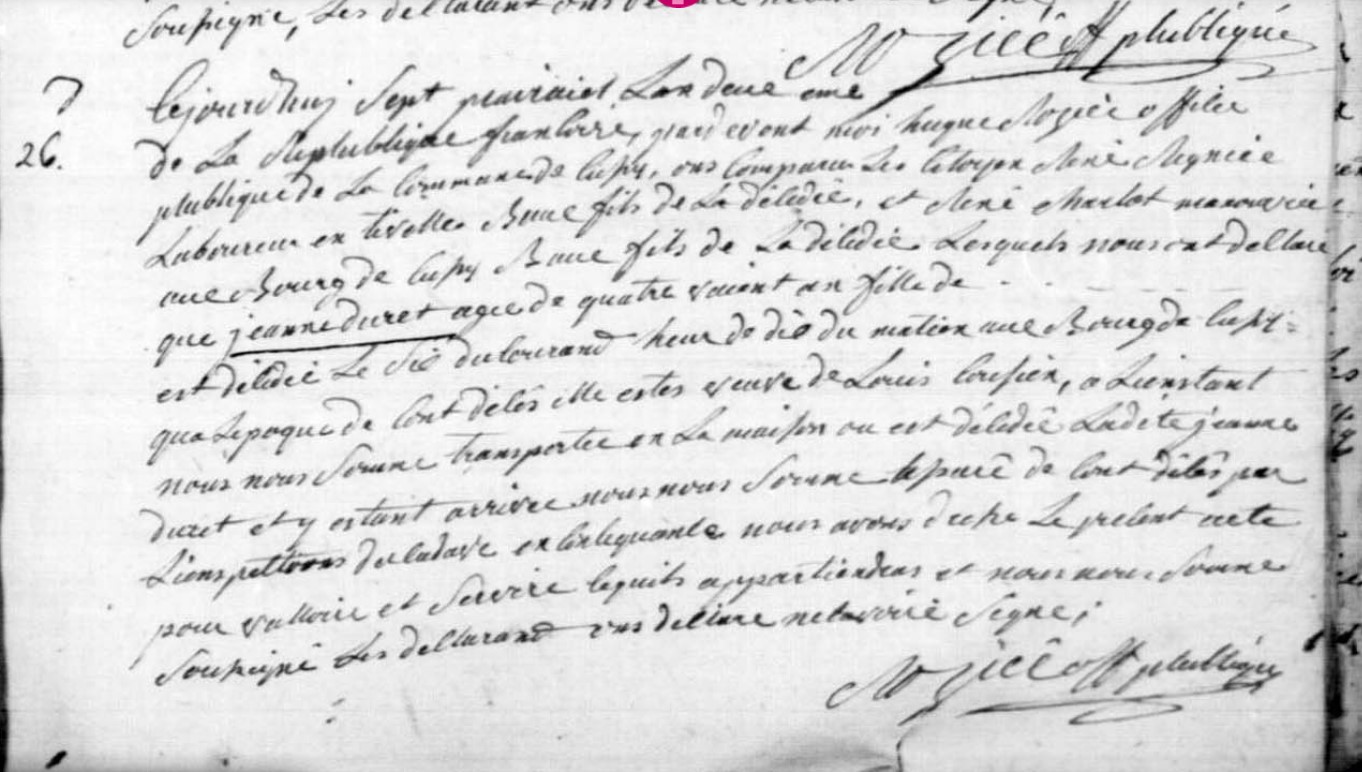 sousigne, Les dellarant ons
Mozice off plubliqué
D
26.
Cejourdhuj Sept prairial Lan deux eme
de La Replublique francoise, pardevont moi hugue Mozice officie
plublique de La Commune de Cussy, ons Comparu Les Citoyen René Regniee
Laboureur en Beaue fils de La délédée, et René Marlot manouvrié
aue Bourg de Cussy Beaue fils de La délédée Lesquels nous ont dellare
que jeanne duret agee de quatre vaient an fille de
est délédée Le Sie du Courand heur de die du mation aue Bourg de Cussy
qua Lepoque de Cont délês elle estes veuve de Louis Cousien, a Lienstant
nous nous Somme transportee en La maison ou est délédée Ladite jeanne
duret et y estant arrivee nous nous Somme de Cont délês par
Lienspettions du Cadavre en Conlequance nous avons decre Le prelent acte
pour valloire et Servire Cequils appartiendras et nous nous Somme
Sousigné Les dellarand ons dellare ne Savoiré Signe;
Mozicé off plubliqué